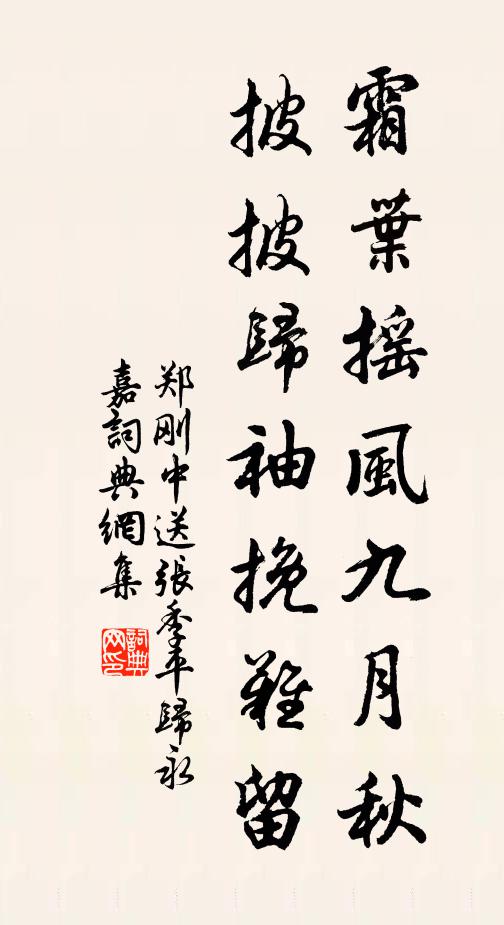 霜葉摇風九月秋
披披歸袖挽難留
郑刚中送張季平歸永
嘉詞典網集
詞典网印